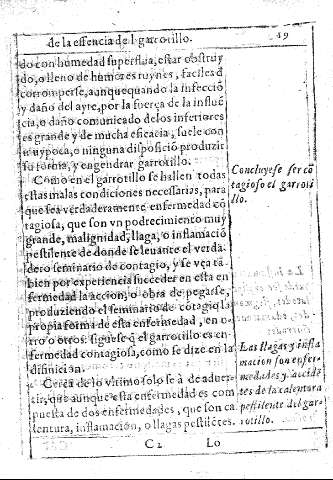 de la essencia de l garrotillo. 19
do con humedad superflua, estar obstruy
do, o lleno de humores ruynes, faciles à
corromperse, aunque quando la infecciō
y daño del ayre, por la fuerça de la influē
cia, o daño comunicado de los inferiores
es grande y de mucha eficacia, suele con
muy poca, o ninguna disposiciō produzir
su forma, y engendrar garrotillo.
Como en el garrotillo se hallen todas
estas malas condiciones necessarias, para
que sea verdaderamente enfermedad cō
tagiosa, que son vn podrecimiento muy
grande, malignidad, llaga, o inflamaciō
pestilente de donde se leuante el verda-
dero seminario de contagio, y se vea tā-
bien por experiencia succeder en esta en
fermedad la accion, o obra de pegarse,
produziendo el seminario de cōtagiọ la
propia forma de esta enfermedad, en o-
tro o otros. siguese q̄ el garrotillo es en-
fermedad contagiosa, como se dize en la
difinicion.
Cerca de lo vltimo solo se à de aduer-
tir, que aunque esta enfermedad es com
puesta de dos enfermedades, que son ca
lentura, inflamacion, o llagas pestilētes.
C2 Lo
Concluyese ser cō
tagioso el garroti
llo.
Las llagas y infla
macion son enfer-
medades y accidē
tes de la calentura
pestilente del gar-
rotillo.